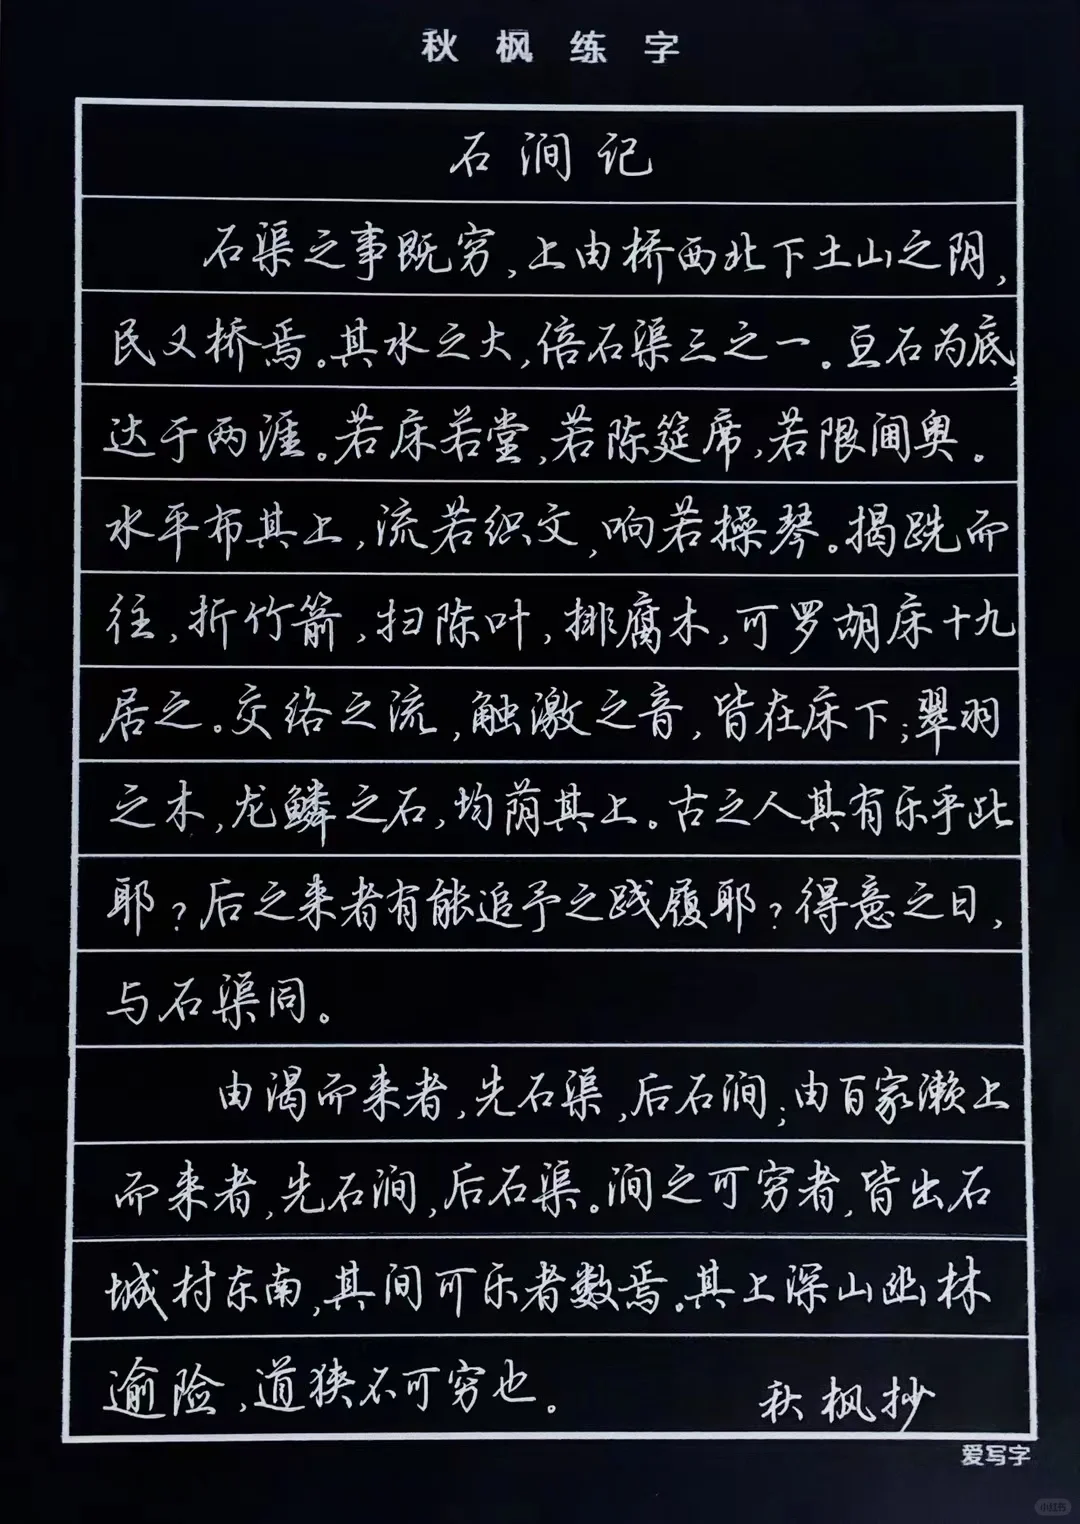 秋枫练字
石涧记
石渠之事既穷,上由桥西北下土山之阴,
民又桥焉。其水之大,倍石渠三之一。亘石为底,
达于两涯。若床若堂,若陈筵席,若限阃奥。
水平布其上,流若织文,响若操琴。揭跣而
往,折竹箭,扫陈叶,排腐木,可罗胡床十九
居之。交络之流,触激之音,皆在床下;翠羽
之木,龙鳞之石,均荫其上。古之人其有乐乎此
耶?后之来者有能追予之践履耶?得意之日,
与石渠同。
由渴而来者,先石渠,后石涧;由百家濑上
而来者,先石涧,后石渠。涧之可穷者,皆出石
城村东南,其间可乐者数焉。其上深山幽林
逾险,道狭不可穷也。
秋枫抄
爱写字
小红书